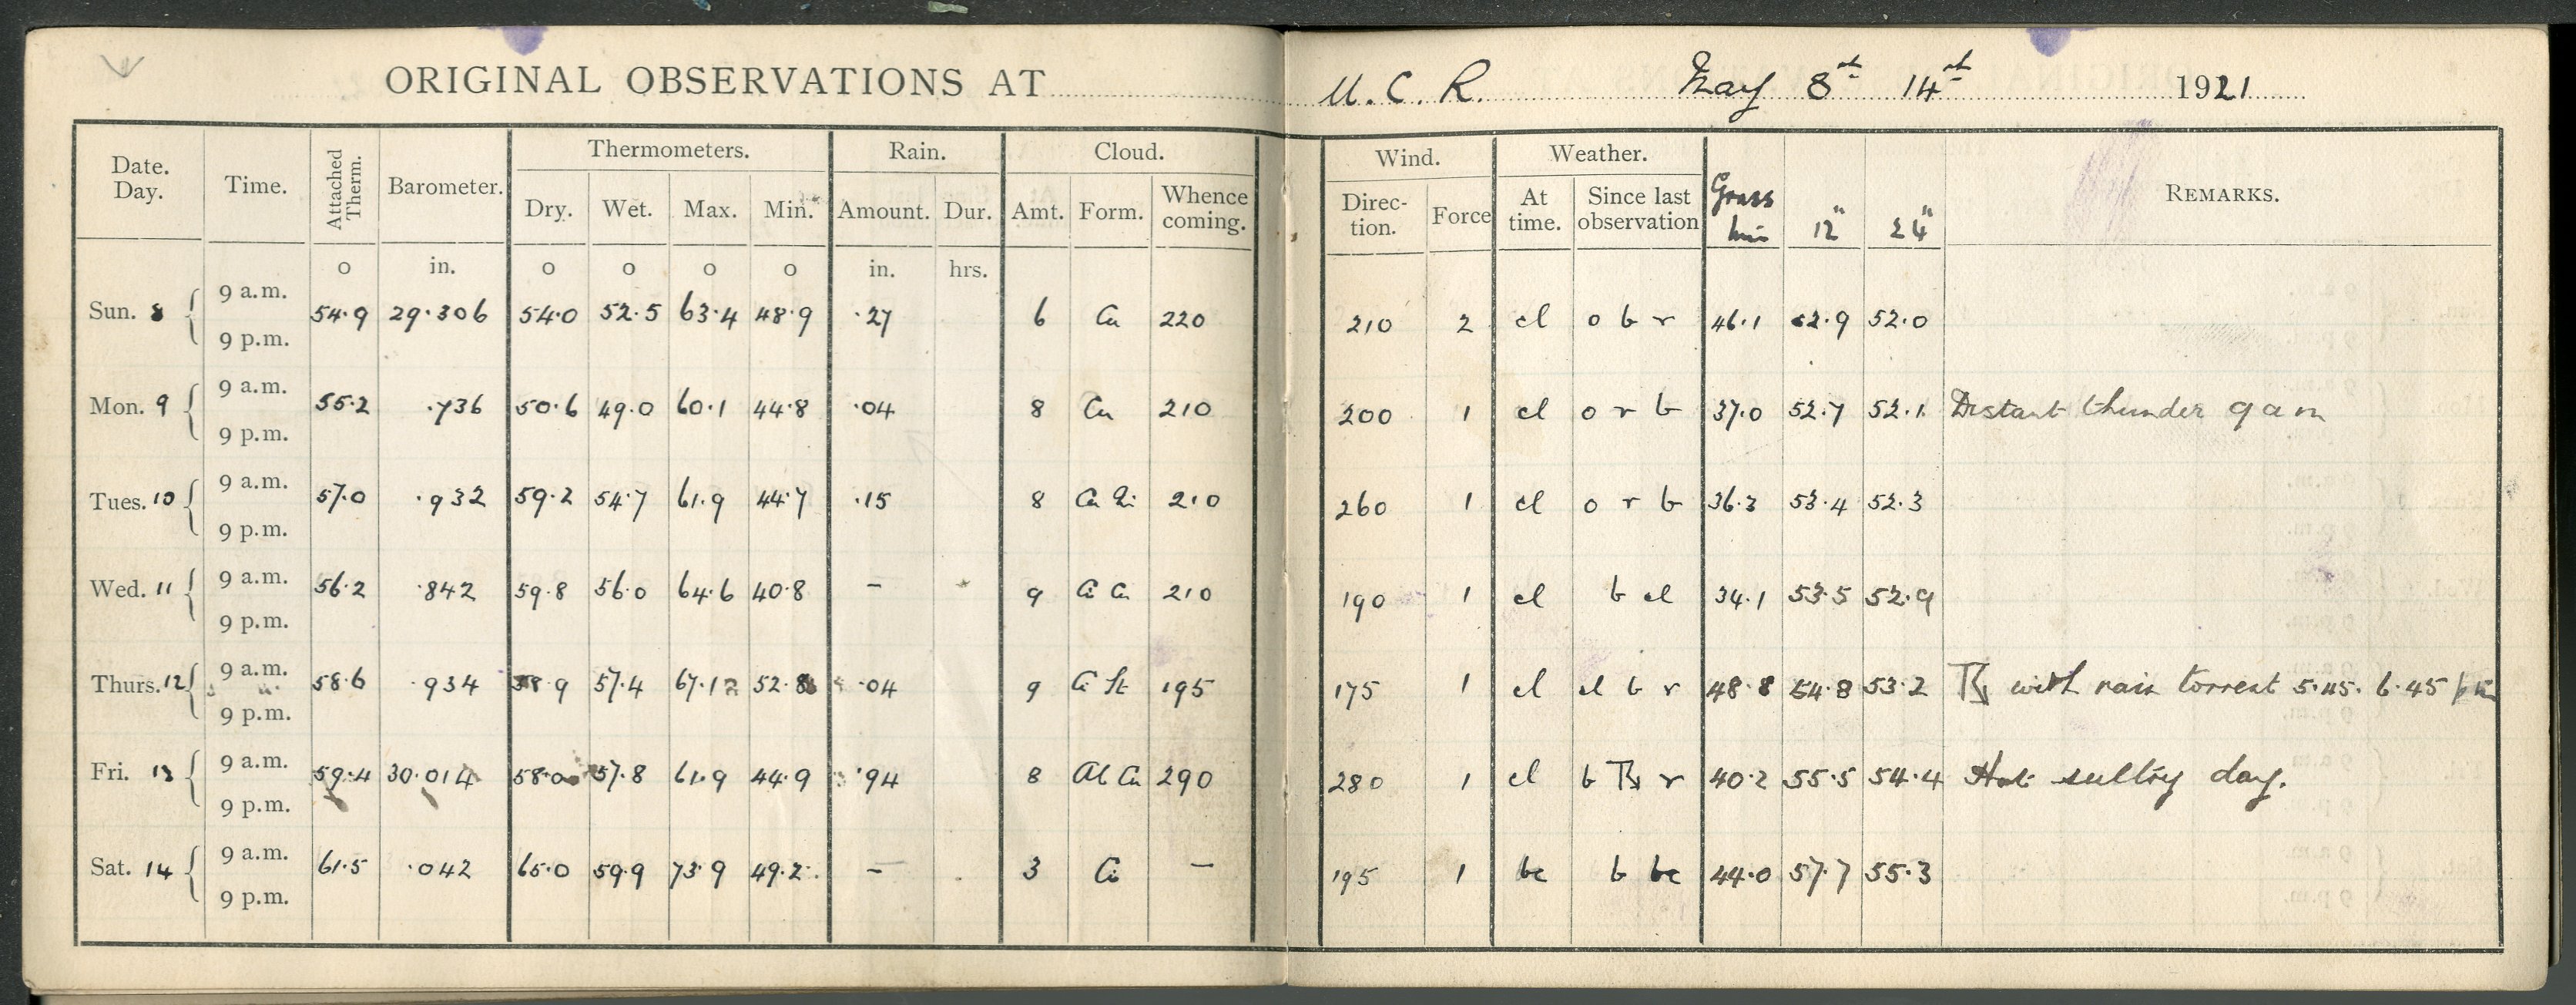 ORIGINAL OBSERVATIONS AT U. C. R. May 8th 14th 1921
Date. Day. Time. Attached Therm. Barometer. Thermometers. Rain. Cloud. Wind. Weather. Grass min 12" 24" REMARKS.
Dry. Wet. Max. Min. Amount. Dur. Amt. Form. Whence coming. Direc-tion. Force At time. Since last observation
o in. o o o o in. hrs.
9 a.m.
Sun. 8 54.9 29.306 54.0 52.5 63.4 48.9 .27 6 Cu 220 210 2 cl o b r 46.1 52.9 52.0
9 p.m.
9 a.m.
Mon. 9 55.2 .736 50.6 49.0 60.1 44.8 .04 8 Cu 210 200 1 cl o r b 37.0 52.7 52.1 Distant thunder 9 a m
9 p.m.
9 a.m.
Tues. 10 57.0 .932 59.2 54.7 61.9 44.7 .15 8 Cu 210 260 1 cl o r b 36.3 53.4 52.3
9 p.m.
9 a.m.
Wed. 11 56.2 .842 59.8 56.0 64.6 40.8 – 9 Ci Cu 210 190 1 cl b cl 34.1 53.5 52.9
9 p.m.
9 a.m.
Thurs. 12 58.6 .934 57.4 67.1 52.8 .04 9 Ci St 195 175 1 cl cl b r 48.8 54.8 53.2 with rain torrent 5.45. 6.45 pm
9 p.m.
9 a.m.
Fri. 13 59.4 30.014 58.0 57.8 61.9 44.9 .94 8 Al Cu 290 280 1 cl b r 40.2 55.5 54.4 Hot sultry day.
9 p.m.
9 a.m.
Sat. 14 61.5 .042 65.0 59.9 73.9 49.2 – 3 Ci – 195 1 bc b bc 44.0 57.7 55.3
9 p.m.